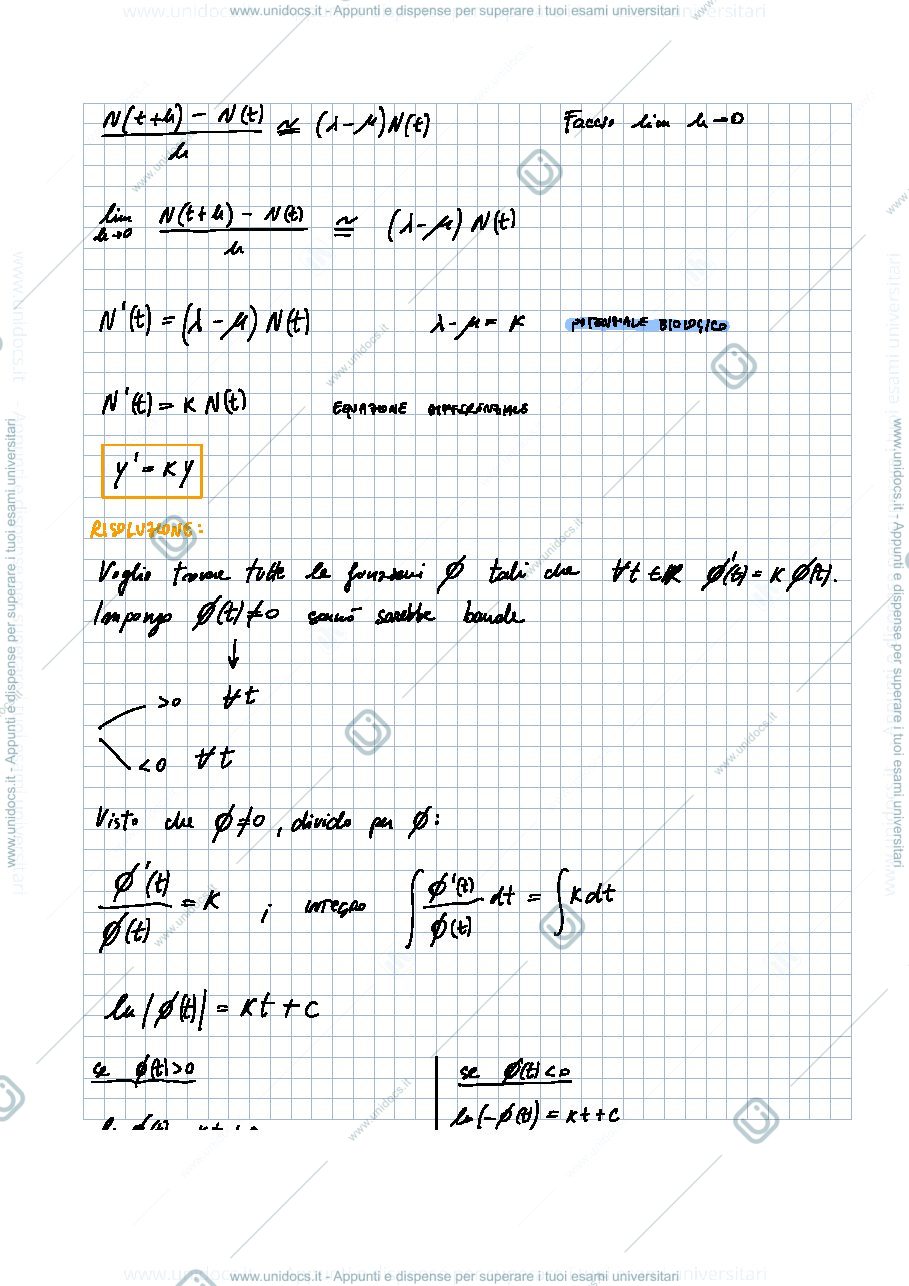 www.unidocs.it - Appunti e dispense per superare i tuoi esami universitari
N(t+h) - N(t) / h ≅ (λ-μ)N(t) Faccio lim h→0
lim h→0 N(t+h) - N(t) / h ≅ (λ-μ) N(t)
N'(t) = (λ - μ) N(t) λ-μ = K POTENZIALE BIOLOGICO
N'(t) = K N(t) EQUAZIONE DIFFERENZIALE
y' = Ky
RISOLUZIONE:
Voglio trovare tutte le funzioni ϕ tali che ∀t ∈ℝ ϕ'(t) = K ϕ(t).
Impongo ϕ(t) ≠ 0 sennò sarebbe banale
↓
>0 ∀t
<0 ∀t
Visto che ϕ≠0, divido per ϕ:
ϕ'(t) / ϕ(t) = K ; INTEGRO ∫ ϕ'(t) / ϕ(t) dt = ∫ K dt
ln|ϕ(t)| = Kt + C
se ϕ(t)>0 se ϕ(t)<0
ln(-ϕ(t)) = Kt+C
www.unidocs.it - Appunti e dispense per superare i tuoi esami universitari